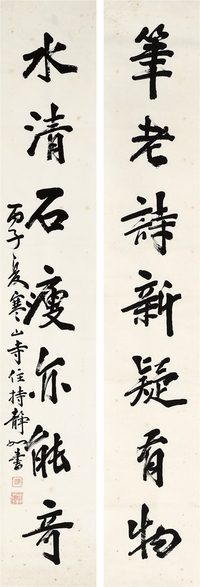 筆老詩新疑有物
水清石瘦亦能奇
丙子夏寒山寺住持靜如書